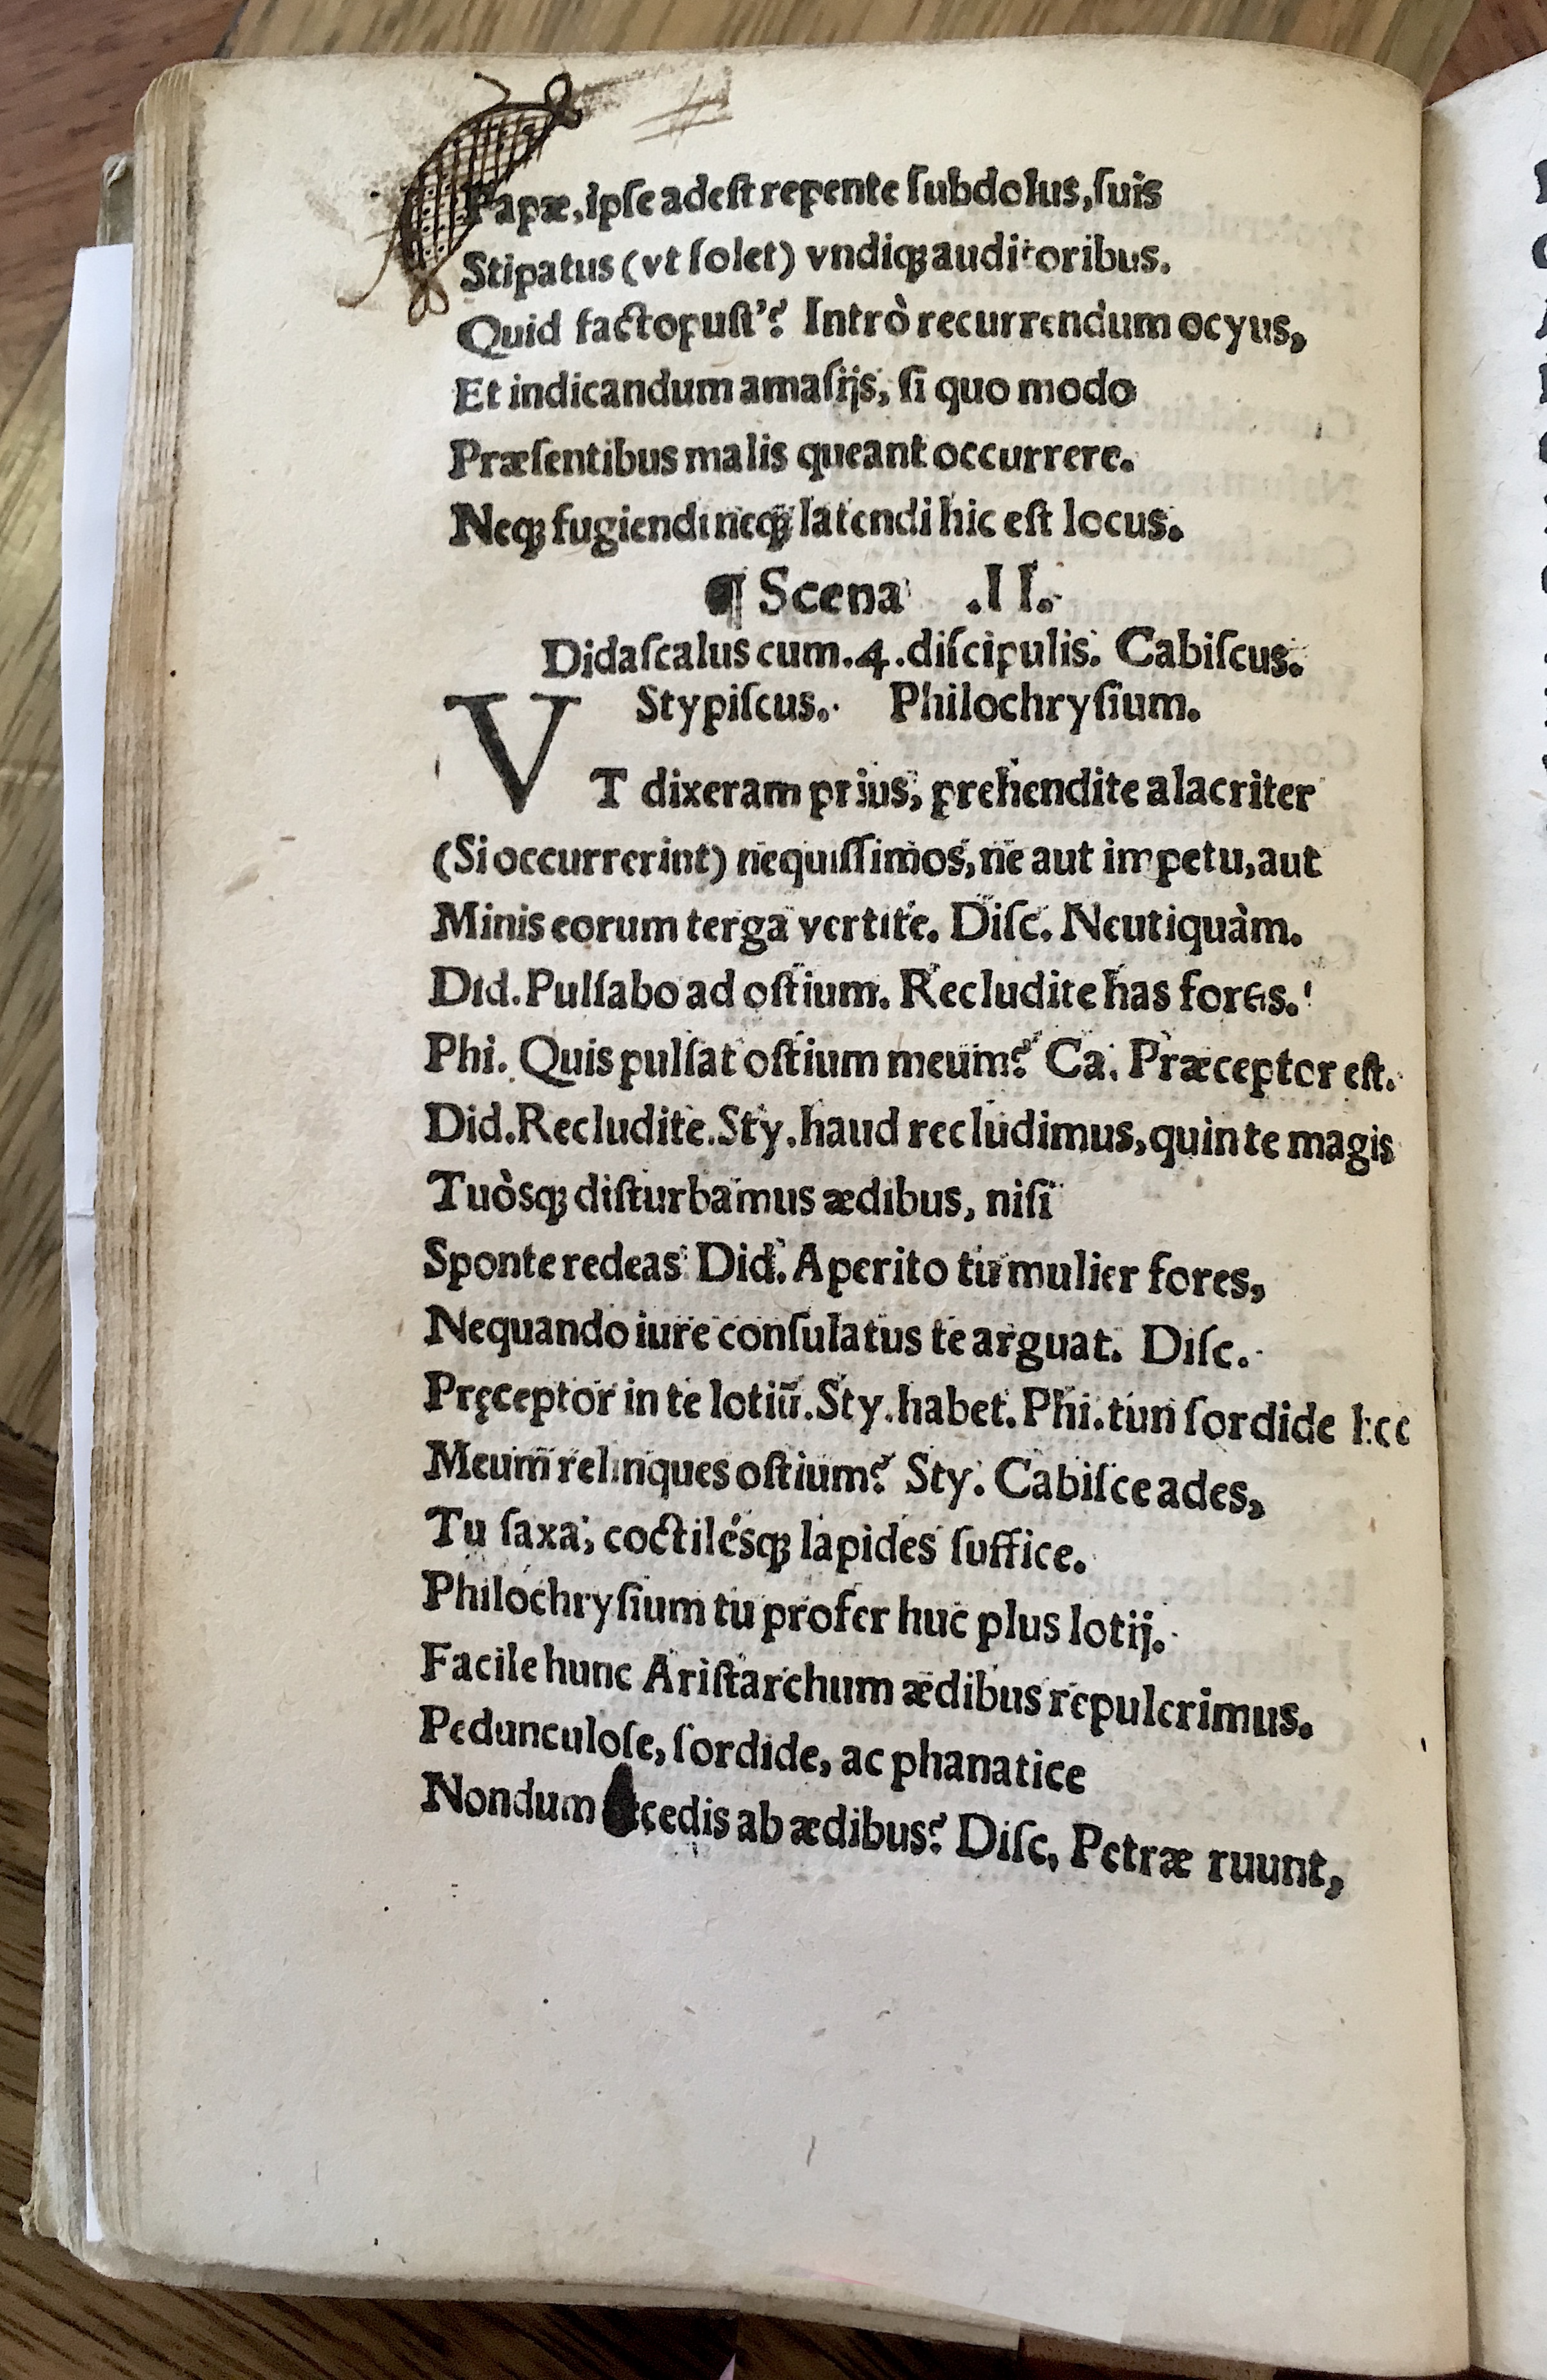 Papæ, ipſe adeſt repente ſubdolus, ſuis
Stipatus (vt ſolet) vndiqꝫ auditoribus.
Quid factopuſt'? Intrò recurrendum ocyus,
Et indicandum amaſijs, ſi quo modo
Præſentibus malis queant occurrere.
Neqꝫ fugiendi neqꝫ latendi hic eſt locus.
¶ Scena .II.
Didaſcalus cum .4. diſcipulis. Cabiſcus.
Stypiſcus. Philochryſium.
VT dixeram prius, prehendite alacriter
(Si occurrerint) nequiſſimos, ne aut impetu, aut
Minis eorum terga vertite. Diſc. Neutiquàm.
Did. Pulſabo ad oſtium. Recludite has fores.
Phi. Quis pulſat oſtium meum? Ca. Præceptor eſt.
Did. Recludite. Sty. haud recludimus, quin te magis
Tuòsqꝫ diſturbamus ædibus, niſi
Sponte redeas. Did. Aperito tu mulier fores,
Nequando iure conſulatus te arguat. Diſc.
Pręceptor in te lotiū. Sty. habet. Phi. tun ſordide hoc
Meum relinques oſtium? Sty. Cabiſce ades,
Tu ſaxa, coctilésqꝫ lapides ſuffice.
Philochryſium tu profer huc plus lotij.
Facile hunc Ariſtarchum ædibus repulerimus.
Pedunculoſe, ſordide, ac phanatice
Nondum ab ædibus? Diſc. Petræ ruunt,